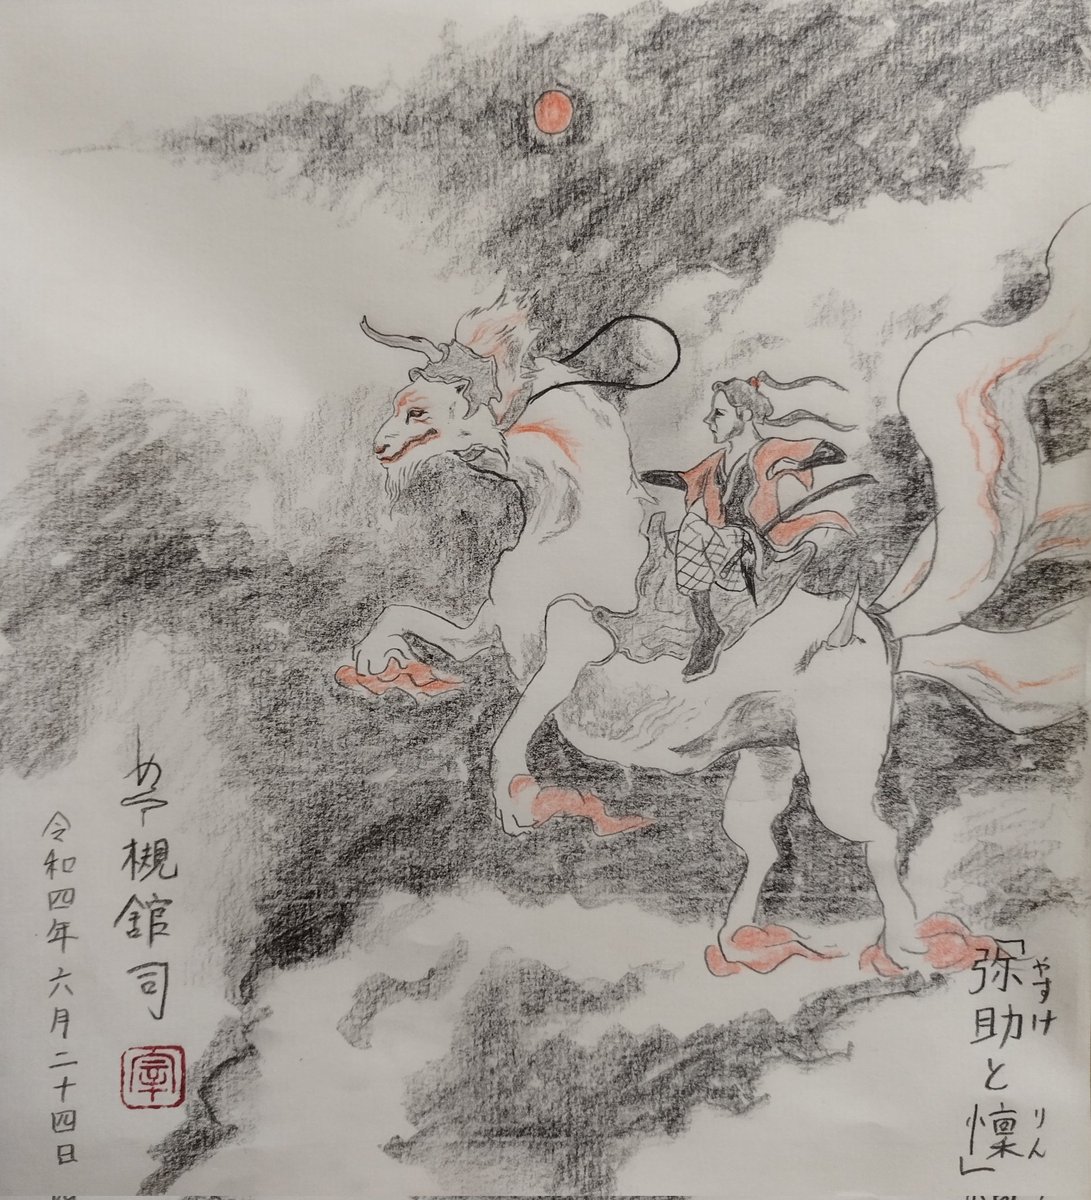 「弥助と懍」
やすけ
りん
槻舘司
令和四年六月二十四日